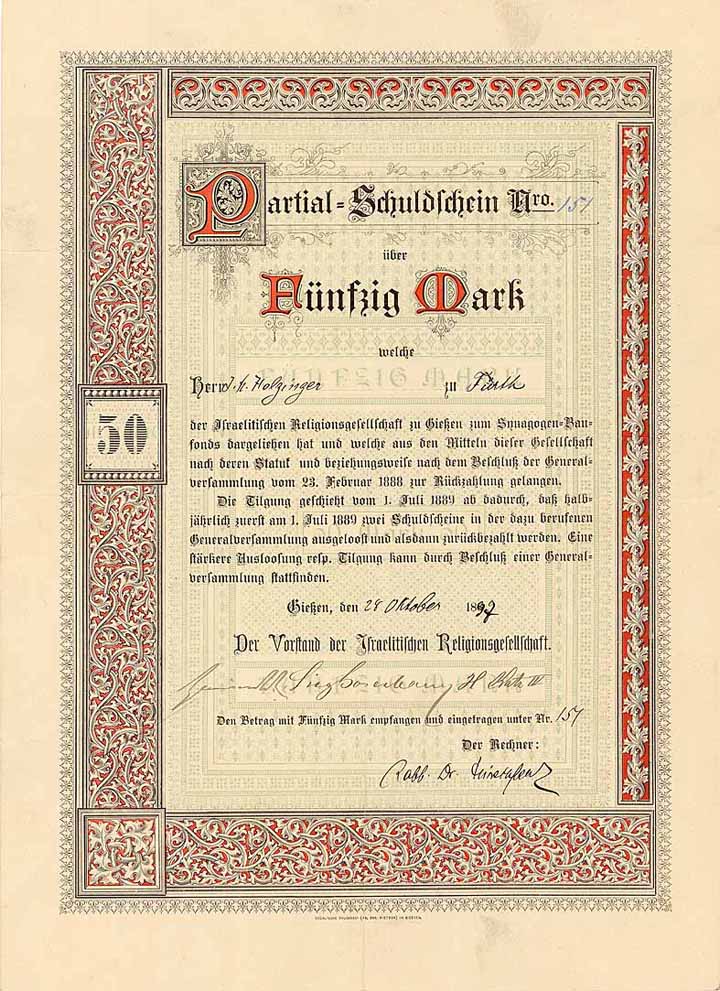 Partial-Schuldschein Nro. 151
über
Fünfzig Mark
welche
Herr J. H. Holzinger zu Fürth
50
der Israelitischen Religionsgesellschaft zu Gießen zum Synagogen-Bau-
fonds dargeliehen hat und welche aus den Mitteln dieser Gesellschaft
nach deren Statut und beziehungsweise nach dem Beschluß der General-
versammlung vom 23. Februar 1888 zur Rückzahlung gelangen.
Die Tilgung geschieht vom 1. Juli 1889 ab dadurch, daß halb-
jährlich zuerst am 1. Juli 1889 zwei Schuldscheine in der dazu berufenen
Generalversammlung ausgeloost und alsdann zurückbezahlt werden. Eine
stärkere Ausloosung resp. Tilgung kann durch Beschluß einer General-
versammlung stattfinden.
Gießen, den 28 Oktober 1897
Der Vorstand der Israelitischen Religionsgesellschaft.
Den Betrag mit Fünfzig Mark empfangen und eingetragen unter Nr. 151
Der Rechner:
Rabb. Dr. Hirschfeld